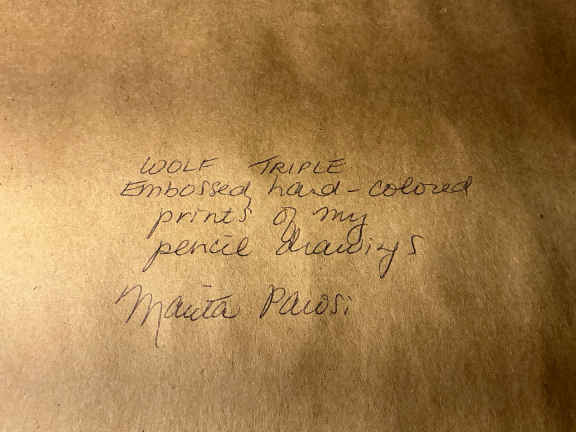 WOLF TRIPLE
Embossed, hand-colored
prints of my
pencil drawings
Marita